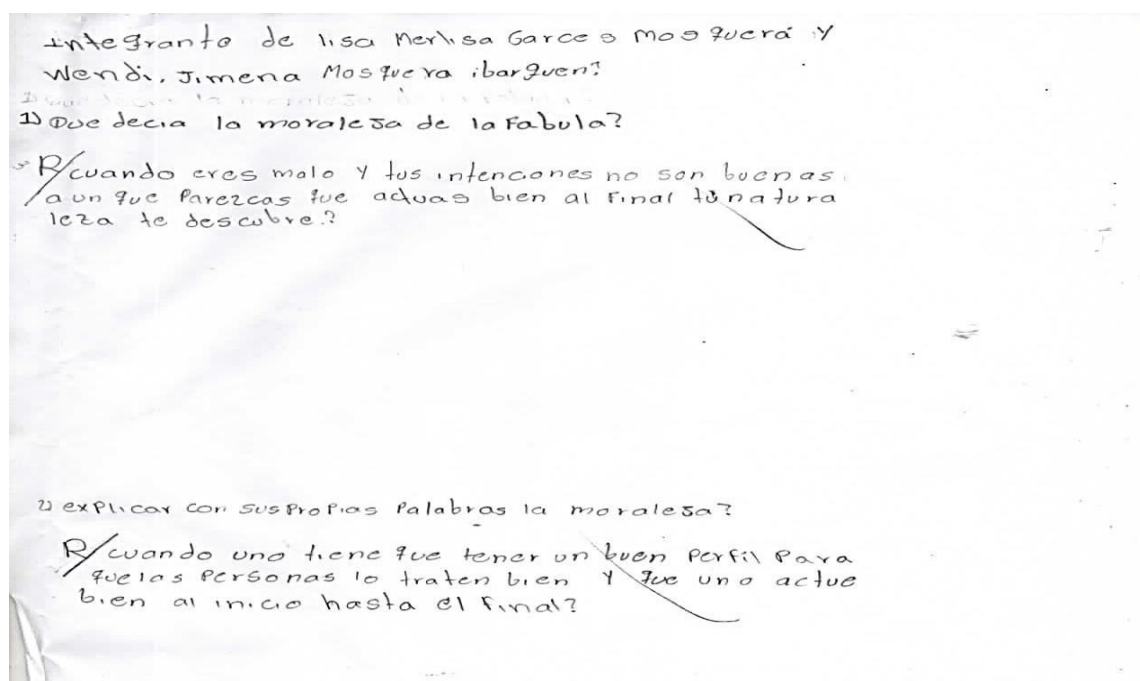 integranto de lisa Merlisa Garces mosquerá y
Wendi. Jimena Mosquera ibarguen?
1) Que decia la moralesa de la Fabula?
R/cuando eres malo y tus intenciones no son buenas
aun que Parezcas que actuas bien al Final tú natura
leza te descubre.?
2) explicar con sus Propias Palabras la moralesa?
R/cuando uno tiene que tener un buen Perfil Para
que las Personas lo traten bien y que uno actue
bien al inicio hasta el Final?